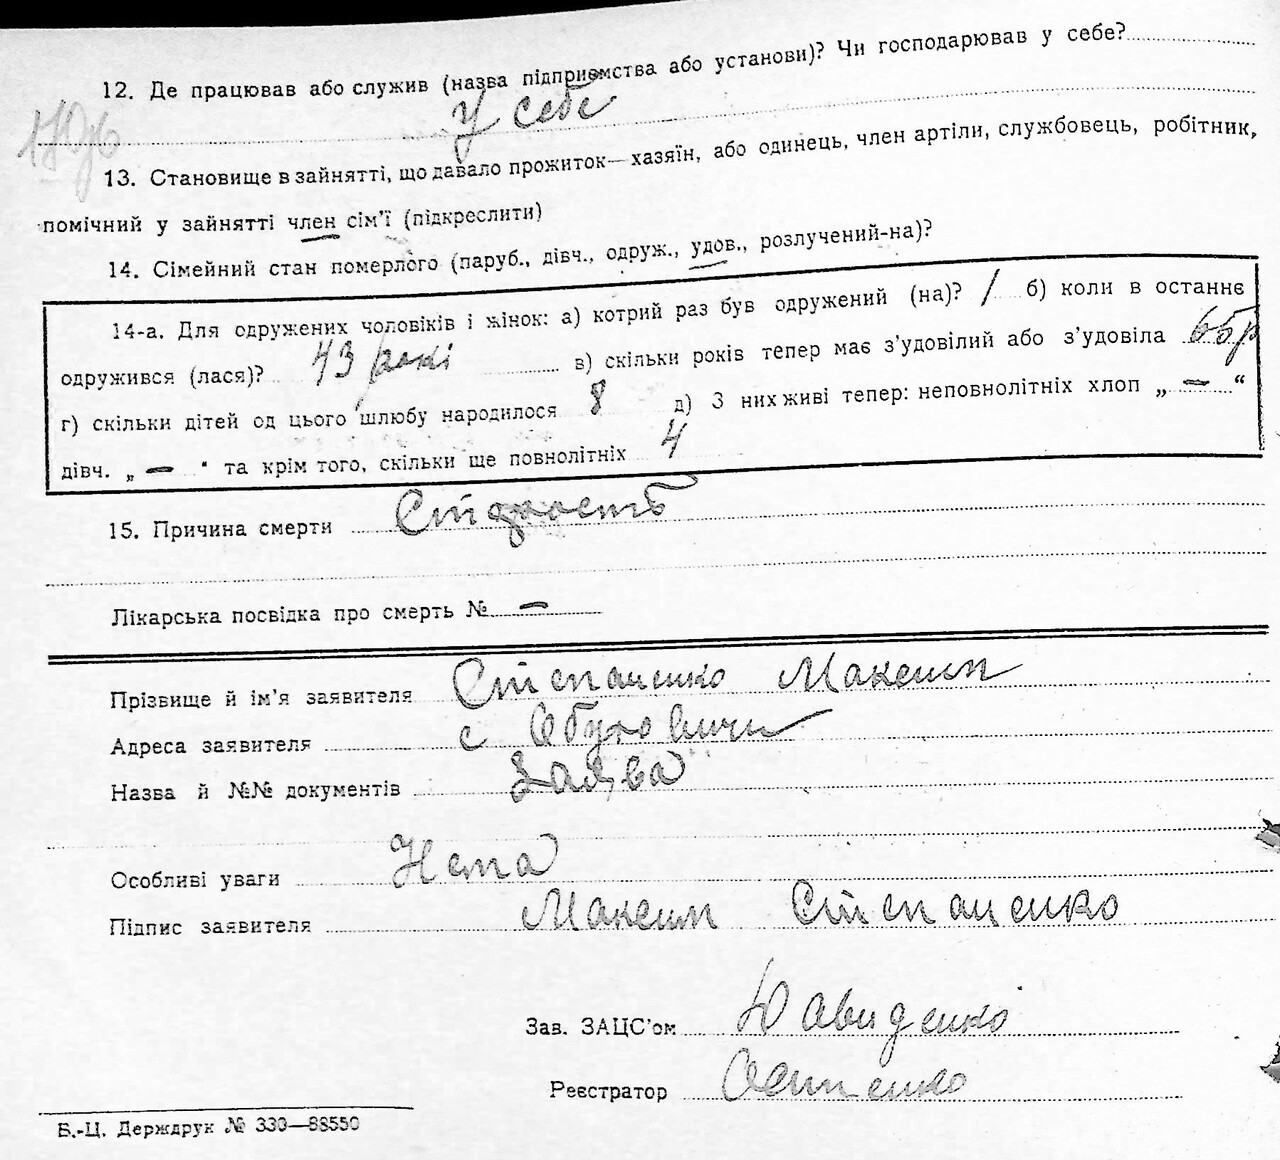 12. Де працював або служив (назва підприємства або установи)? Чи господарював у себе?
у себе
13. Становище в зайнятті, що давало прожиток—хазяїн, або одинець, член артіли, службовець, робітник,
помічний у зайнятті член сім'ї (підкреслити)
14. Сімейний стан померлого (паруб., дівч., одруж., удов., розлучений-на)?
14-а. Для одружених чоловіків і жінок: а) котрий раз був одружений (на)? / б) коли в останнє
одружився (лася)? 43 рокі в) скільки років тепер має з'удовілий або з'удовіла
г) скільки дітей од цього шлюбу народилося 8 д) З них живі тепер: неповнолітніх хлоп „ — “
дівч. „ — “ та крім того, скільки ще повнолітніх 4
15. Причина смерти Старость
Лікарська посвідка про смерть № —
Прізвище й ім'я заявителя Степаненко Максим
Адреса заявителя с Обуховичи
Назва й №№ документів Заява
Особливі уваги Нема
Підпис заявителя Максим Степаненко
Зав. ЗАЦС'ом Давиденко
Реєстратор Осипенко
Б.-Ц. Держдрук № 330—88550